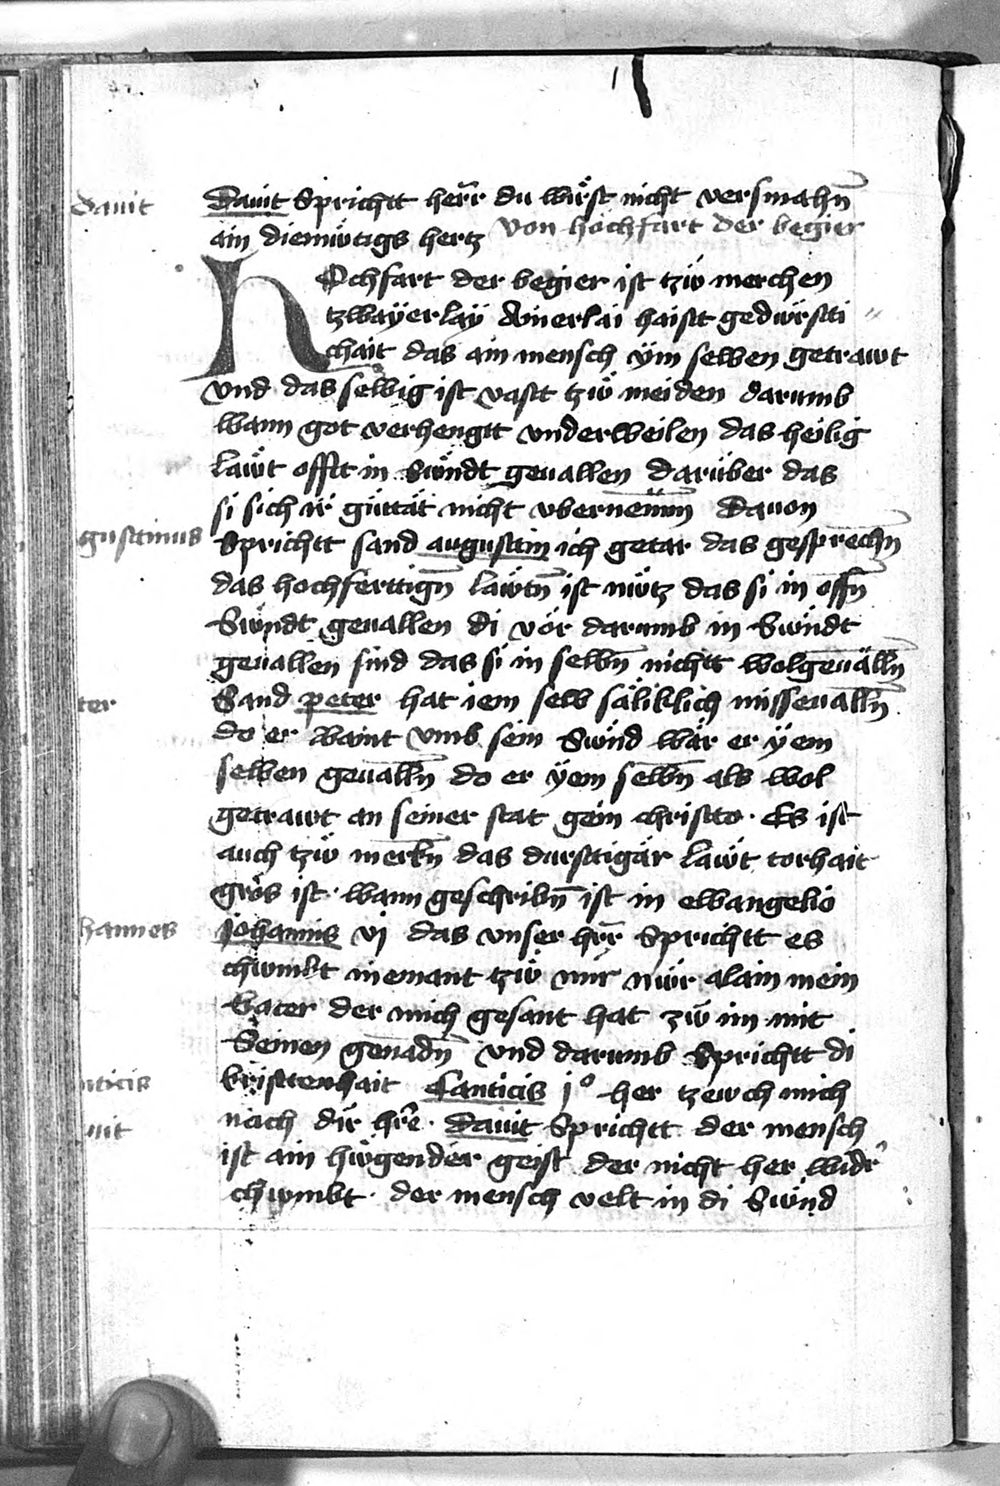 dauit
Dauit Sprichtt herr̄ du wirst nicht versmahn̄
ain diemv̈tigs hertz von hochfart der begier
HOchfart der begier ist tzw̋ merchen
tzwaÿerlaÿ Ainerlai haist gedw̋rsti
chait das ain mensch ÿm selben getrawt
vnd das selbig ist vast tzw̋ meiden darumb
wann got verhengtt vnderweilen das heilig
law̋t offtt in Sw̋ndt geuallen darüber das
si sich ir güttät nicht vbernemm̄ Dauon
gustinus
Sprichtt sand augustin ich getar das gesprechn̄
das hochferttign̄ law̋tn̄ ist nw̋tz das si in offn̄
Sw̋ndt geuallen di vor darumb in Sw̋ndt
geuallen sind das si in selbn̄ nichtt wolgeuälln̄
ter
Sand peter hat iem selb säliklich misseualln̄
do er waint vmb sein Sw̋nd wär er ÿem
selben geualln̄ do er ÿem selbn̄ als wol
getrawt an seiner stat gein christo · Es ist
auch tzw̋ merkn̄ das durstigär law̋t torhait
gros ist · wann geschribn̄ ist in ewangelio
hannes
Johannis vj das vnser hr̄r Sprichtt es
chwmbt niemant tzw̋ mir nwr alain mein
vater der mich gesant hat zw̋ im mit
Seinen genadn̄ vnd darumb Sprichtt di
nticis
kristtenhait Canticis j° her tzewch mich
uit
nach dir hr̄e · Dauit Sprichtt der mensch
ist ain hw̋gender geist der nicht her widr̄
chwmbt · der mensch velt in di Sw̋nd